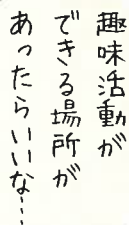 趣味活動が
できる場所が
あったらいいな…